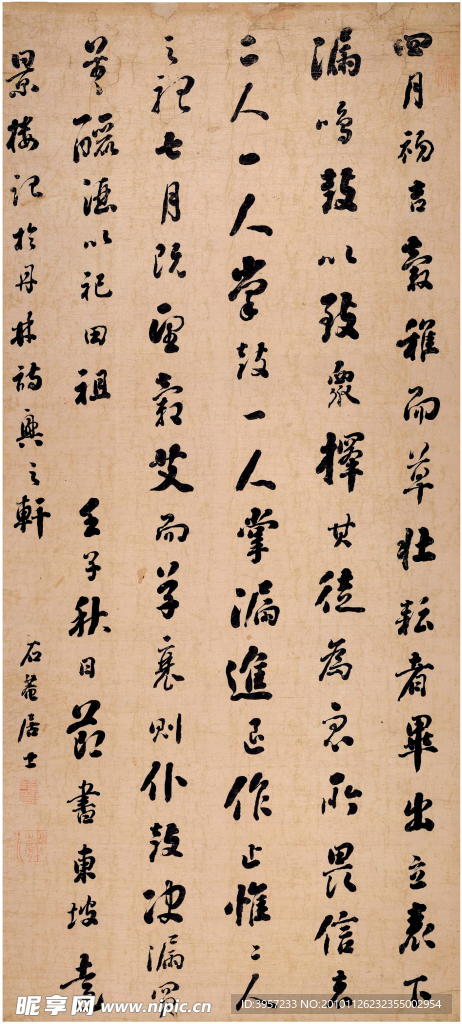 四月初吉穀稚而草壯耘者畢出立表下
漏鳴鼓以致衆擇其徒為衆所畏信者
二人一人掌鼓一人掌漏進退作止惟二人
之聽七月既望穀艾而草衰則仆鼓決漏買
羊釃酒以祀田祖 壬子秋日節書東坡遠
景樓記於丹林詩興之軒
石菴居士
昵享网 www.nipic.cn
ID:3957233 NO:20101126232355002954